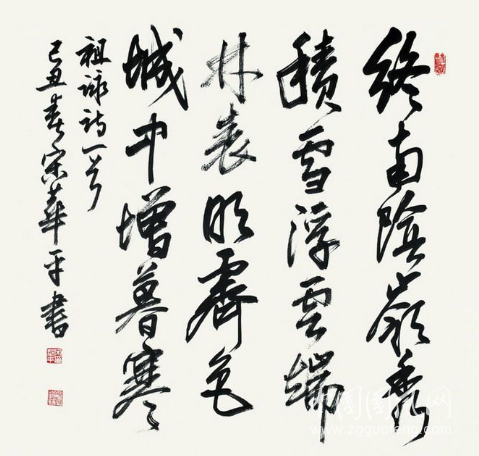 終南陰嶺秀
積雪浮雲端
林表明霽色
城中增暮寒
祖詠詩一首
己丑春宋華平書
www.zgguofang.com